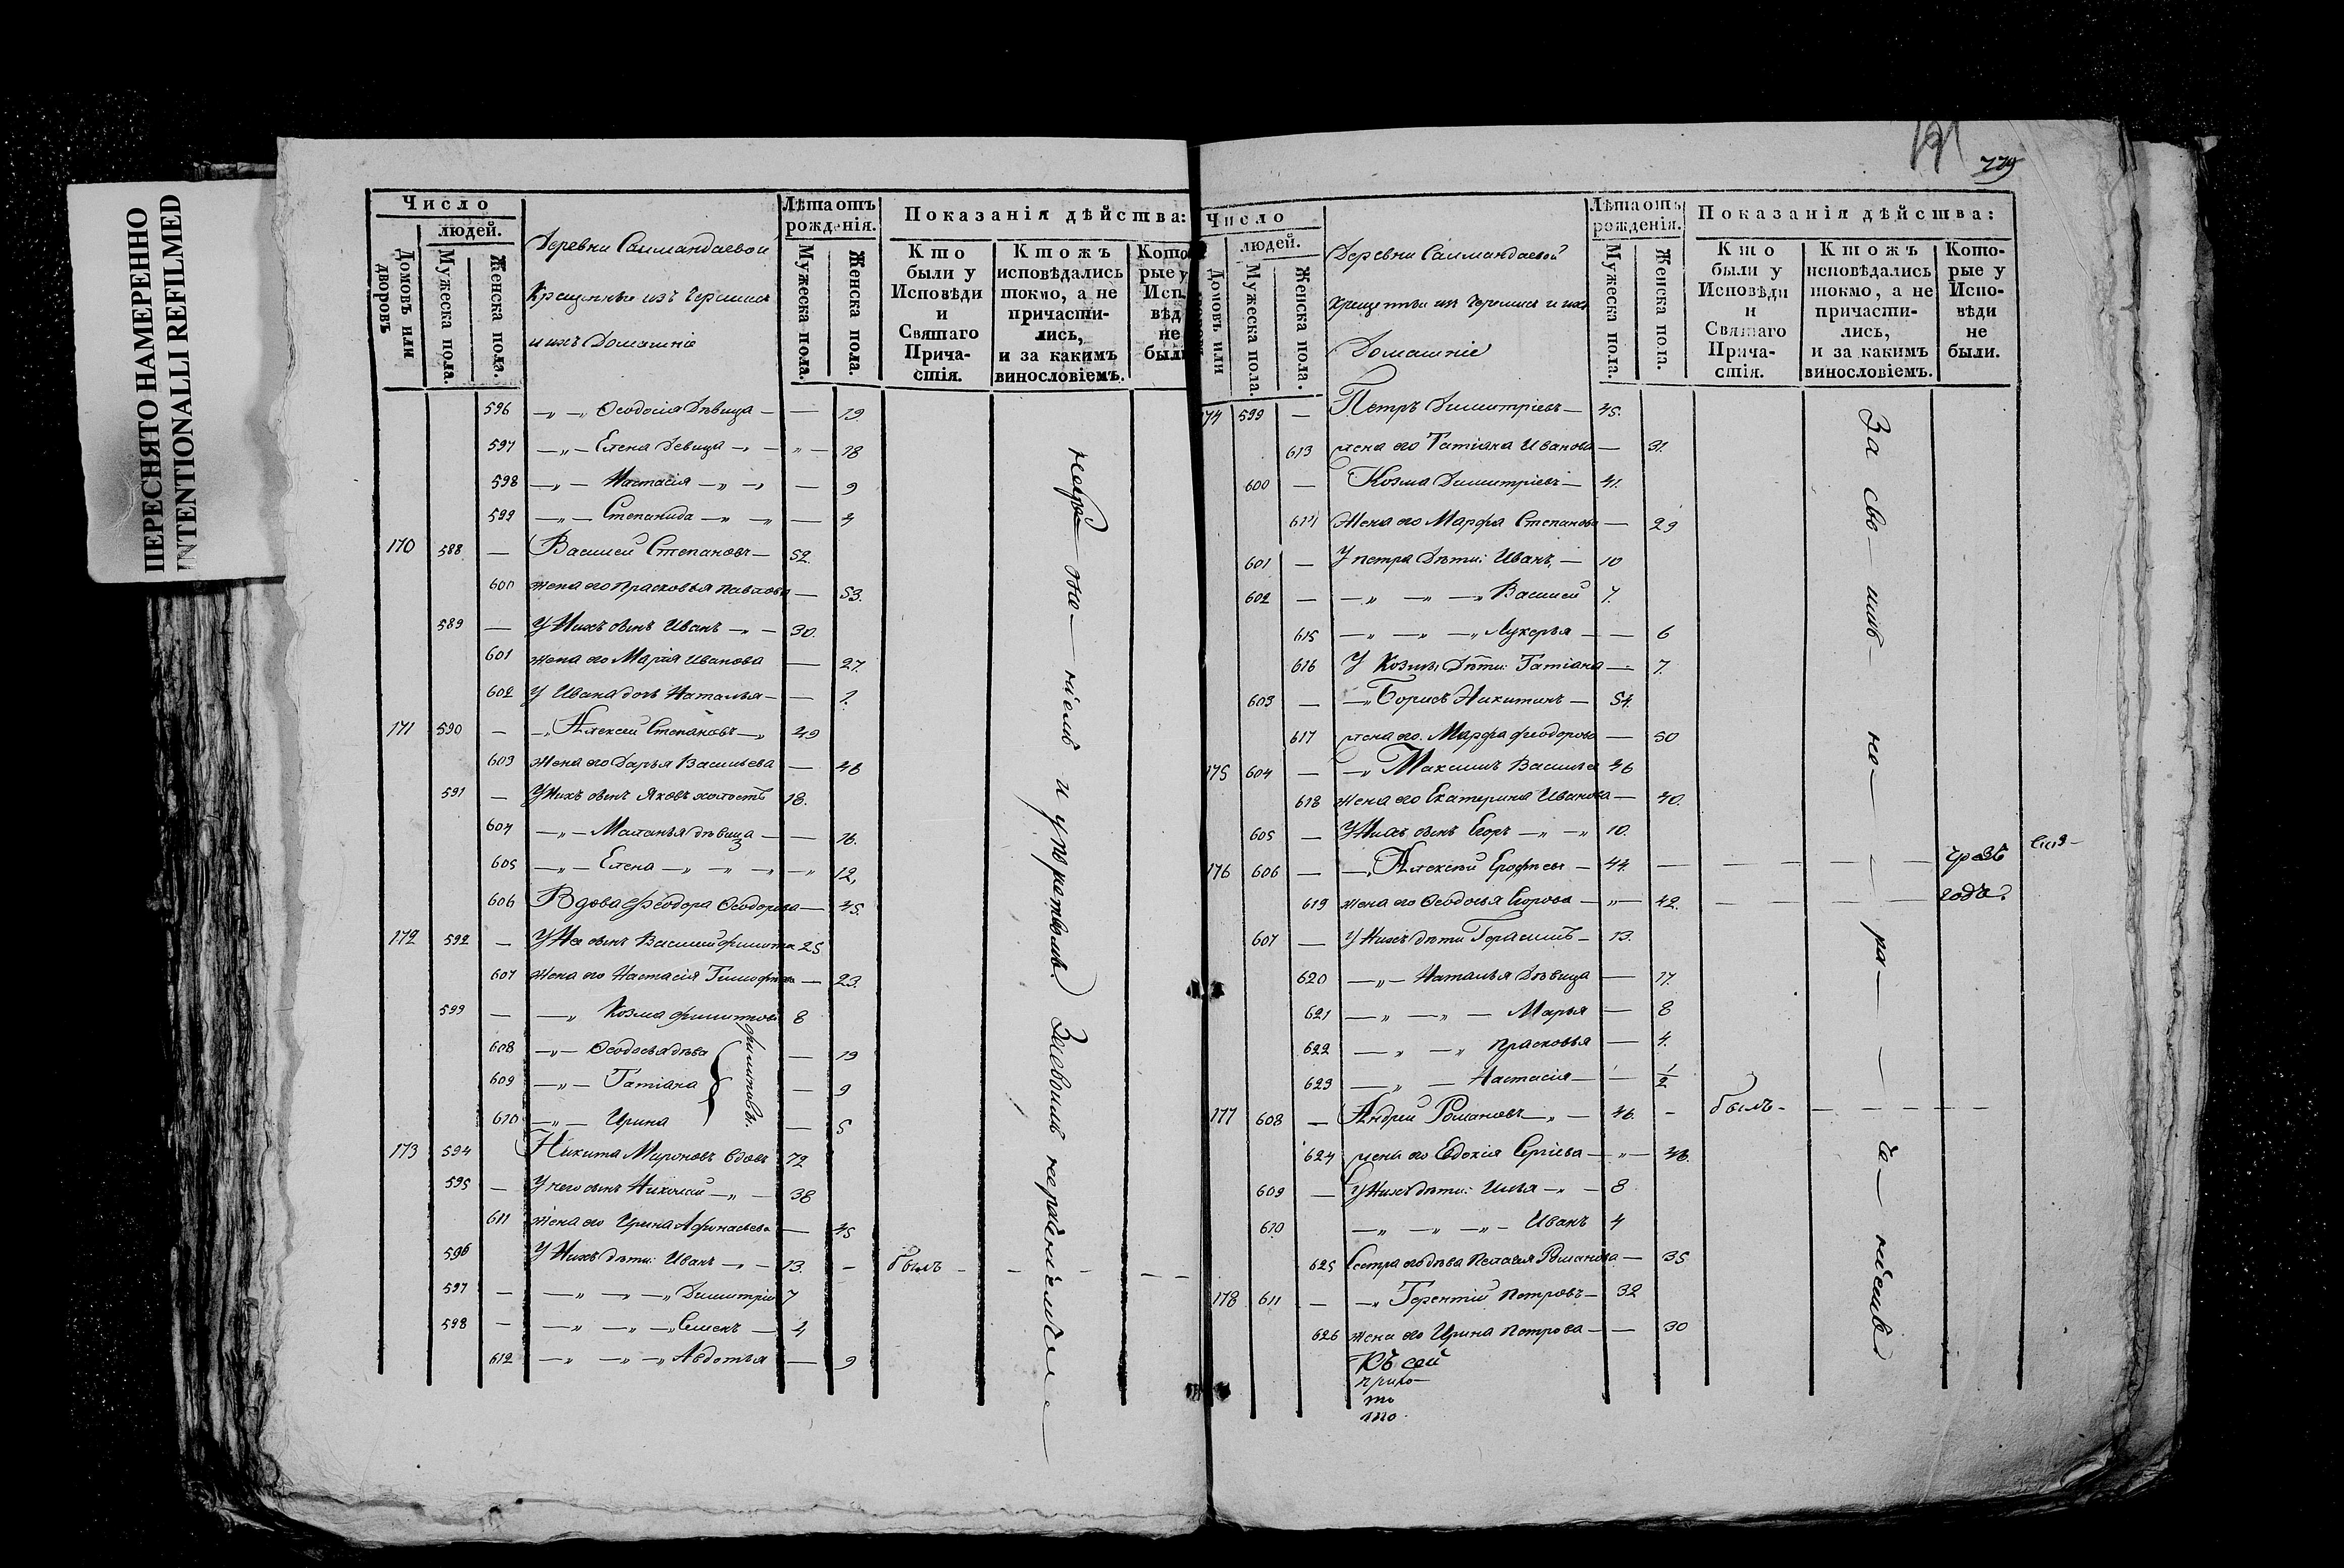 ПЕРЕСНЯТО НАМЕРЕННО
INTENTIONALLI REFILMED
Число
людей.
Домовъ или дворовъ
Мужеска пола.
Женска пола.
Деревни Саимандаевой
Крещенные изъ Черемисъ
и ихъ Домашніе
Лѣта отъ рожденія.
Мужеска пола.
Женска пола.
Показанія дѣйства:
Кто были у Исповѣди и Святаго Причастія.
Ктожъ исповѣдались токмо, а не причастились, и за какимъ винословіемъ.
Кото рые у Исп вѣд не были
596 —„— Ѳеодосія Дѣвица — — 19.
597 —„— Елена Девица —„— „— 18
598 —„— Настасія —„— — 9
599 —„— Степанида —„— — 4
170 588 — Василей Степановъ — 52.
600 жена его Прасковья Павлова — 53.
589 — У Нихъ сынъ Иванъ —„— 30.
601 жена его Марія Иванова — 27.
602 У Ивана дочь Наталья — —
171 590 — —„ Алексей Степановъ —„ 49
603 Жена его Дарья Васильева — 46
591 — У Нихъ сынъ Яковъ холостъ 18.
604 —„— Маланья дѣвица — — 16.
605 —„— Елена —„—„—„ —„ 12,
606 Вдова Феодора Ѳеодорова — 45.
172 592 — У Не сынъ Василий 25
607 Жена его Настасія Тимофѣева — 23.
593 — —„ Козма Филиповъ 8
608 —„— Ѳеодосья дѣва — 19
609 —„— Татіана — 9
610 —„— Ирина — 5
Филиповы.
173 594 Никита Мироновъ вдовъ 72
595 — У него сынъ Николай —„— 38
611 Жена его Ирина Афонасьева — 45
596 У Нихъ дѣти: Иванъ —„— 13. — былъ — — — —
597 — —„—„—„ Димитрій 7
598 — —„—„—„ Семенъ — 4
612 —„—„—„ Авдотья — 9
ніемъ и упорствомъ. За своимъ нераченіемъ
191
779
Число
людей.
Домовъ или
Мужеска пола.
Женска пола.
Деревни Саимандаевой
крещенные изъ Черемисъ и ихъ
Домашніе
Лѣта отъ рожденія.
Мужеска пола.
Женска пола.
Показанія дѣйства:
Кто были у Исповѣди и Святаго Причастія.
Ктожъ исповѣдались токмо, а не причастились, и за какимъ винословіемъ.
Которые у Исповѣди не были.
174 599 — Петръ Димитріевъ — 45.
613 жена его Татіана Иванова — 31.
600 — Козма Димитріевъ — 41.
614 Жена его Марфа Степанова — 29
601 — У петра Дѣти: Иванъ, — 10
602 — —„—„—„ Василей 7.
615 —„—„—„ Лукерья — — 6
616 У Козмы Дѣти: Татіана — 7.
603 — —„ Борисъ Никитинъ — 54.
617 жена его. Марфа Феодорова — 50
175 604 — —„ Максимъ Васильев 46
618 жена его Екатерина Иванова — 40.
605 — У Нихъ сынъ Егоръ —„—„ 10.
176 606 — —„ Алексей Ерофеевъ — 44. — — — — чрезъ
619 жена его Ѳеодосья Егорова —„— 42. — — — — годъ.
607 — У Нихъ дѣти Герасимъ — 13.
620 —„— Наталья Дѣвица — 17.
621 —„—„— Марья — 8
622 —„—„ Прасковья — 4.
623 —„— Настасія — — 1/2
177 608 — Андрей Романовъ —„— 46. — былъ — — — — —
624 жена его Евдокія Сергіева —„— 46.
609 — У Нихъ дѣти: Илья —„— 8
610 —„—„—„— Иванъ 4
625 Сестра его дѣва Пелагія Романова — 35
178 611 — —„ Терентій Петровъ — 32
626 жена его Ирина Петрова — — 30
За сво имъ не ра че ніемъ
Къ сей